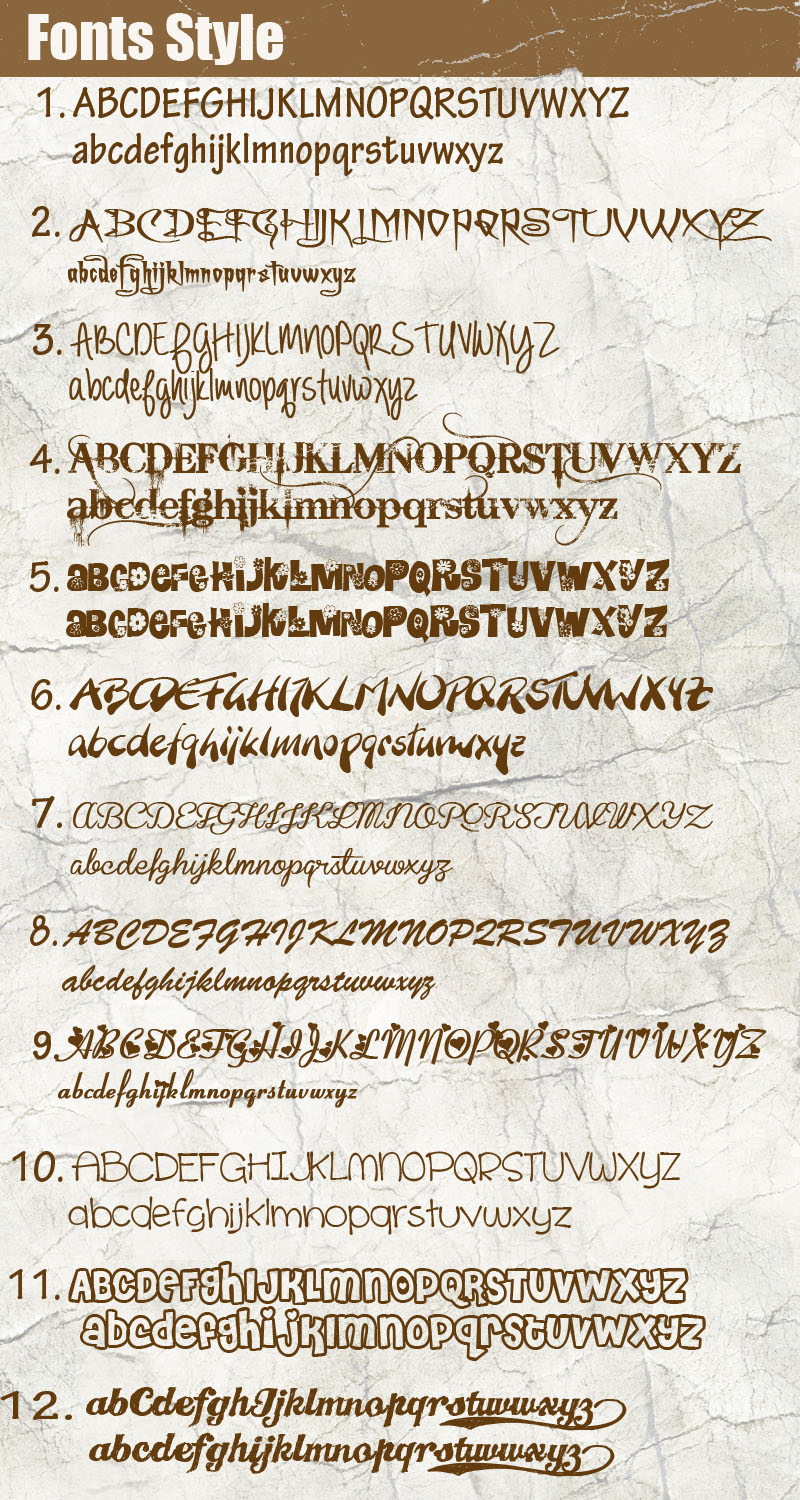 Fonts Style
1. ABCDEFGHIJKLMNOPQRSTUVWXYZ
abcdefghijklmnopqrstuvwxyz
2. ABCDEFGHIJKLMNOPQRSTUVWXYZ
abcdefghijklmnopqrstuvwxyz
3. ABCDEFGHIJKLMNOPQRSTUVWXYZ
abcdefghijklmnopqrstuvwxyz
4. ABCDEFGHIJKLMNOPQRSTUVWXYZ
abcdefghijklmnopqrstuvwxyz
5. aBCDeFGHIJKLMNOPQRSTUVWXYZ
aBCDeFGHIJKLMNOPQRSTUVWXYZ
6. ABCDEFGHIJKLMNOPQRSTUVWXYZ
abcdefghijklmnopqrstuvwxyz
7. ABCDEFGHIJKLMNOPQRSTUVWXYZ
abcdefghijklmnopqrstuvwxyz
8. ABCDEFGHIJKLMNOPQRSTUVWXYZ
abcdefghijklmnopqrstuvwxyz
9. ABCDEFGHIJKLMNOPQRSTUVWXYZ
abcdefghijklmnopqrstuvwxyz
10. ABCDEFGHIJKLMNOPQRSTUVWXYZ
abcdefghijklmnopqrstuvwxyz
11. ABCDEFGHIJKLMNOPQRSTUVWXYZ
abcdefghijklmnopqrstuvwxyz
12. abCdefghIjklmnopqrstuvwxyz
abcdefghijklmnopqrstuvwxyz